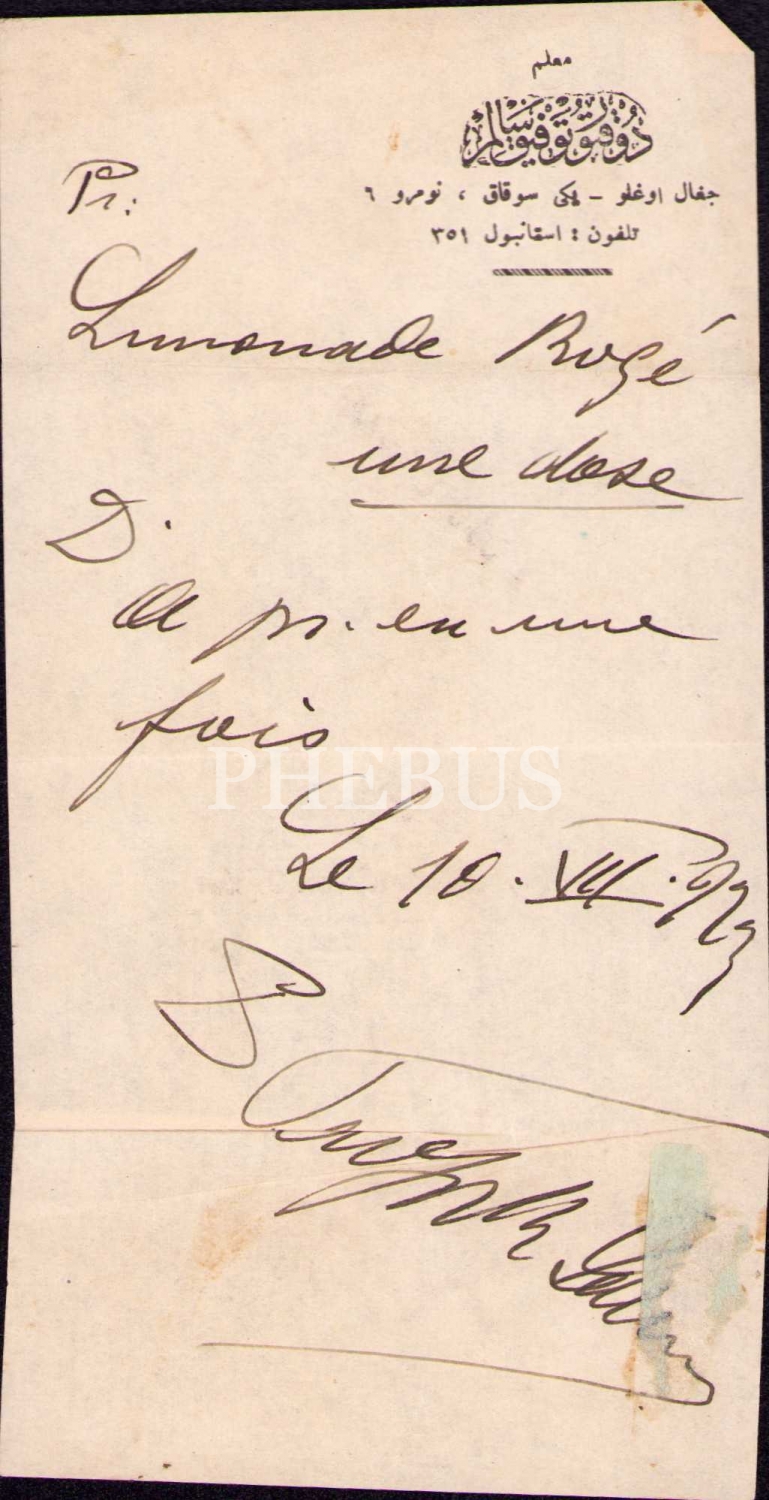 معلم
دوقتور توفيق سالم
جغال اوغلو – يكی سوقاق ، نومرو ٦
تلفون : استانبول ٣٥١
Pr:
Limonade Rogé
une dose
D.
a pr. en une
fois
PHEBUS
Le 10. VII.
Tewfik Salim